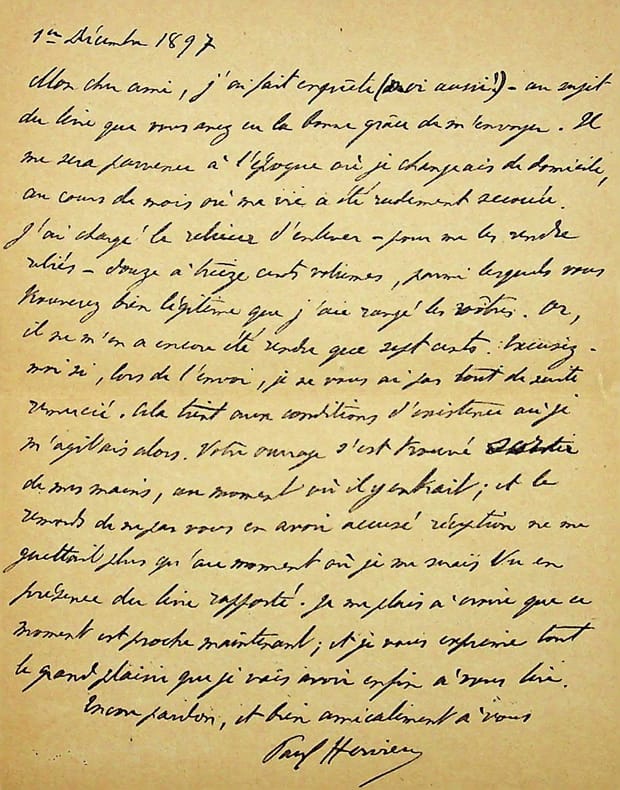 1er Décembre 1897
Mon cher ami, j'ai fait enquête (moi aussi!) – au sujet
du livre que vous avez eu la bonne grâce de m'envoyer. Il
me sera parvenu à l'époque où je changeais de domicile,
au cours de mois où ma vie a été rudement secouée.
J'ai chargé le relieur d'enlever – pour me les rendre
reliés – douze à treize cents volumes, parmi lesquels vous
trouverez bien légitime que j'aie rangé les vôtres. Or,
il ne m'en a encore été rendu que sept cents. Excusez-
moi si, lors de l'envoi, je ne vous ai pas tout de suite
remercié. Cela tient aux conditions d'existence où je
m'agitais alors. Votre ouvrage s'est trouvé sortir
de mes mains, au moment où il y entrait ; et le
remords de ne pas vous en avoir accusé réception ne me
guettait plus qu'au moment où je me serais vu en
présence du livre rapporté. Je me plais à croire que ce
moment est proche maintenant ; et je vous exprime tout
le grand plaisir que je vais avoir enfin à vous lire.
Encore pardon, et bien amicalement à vous
Paul Hervieu